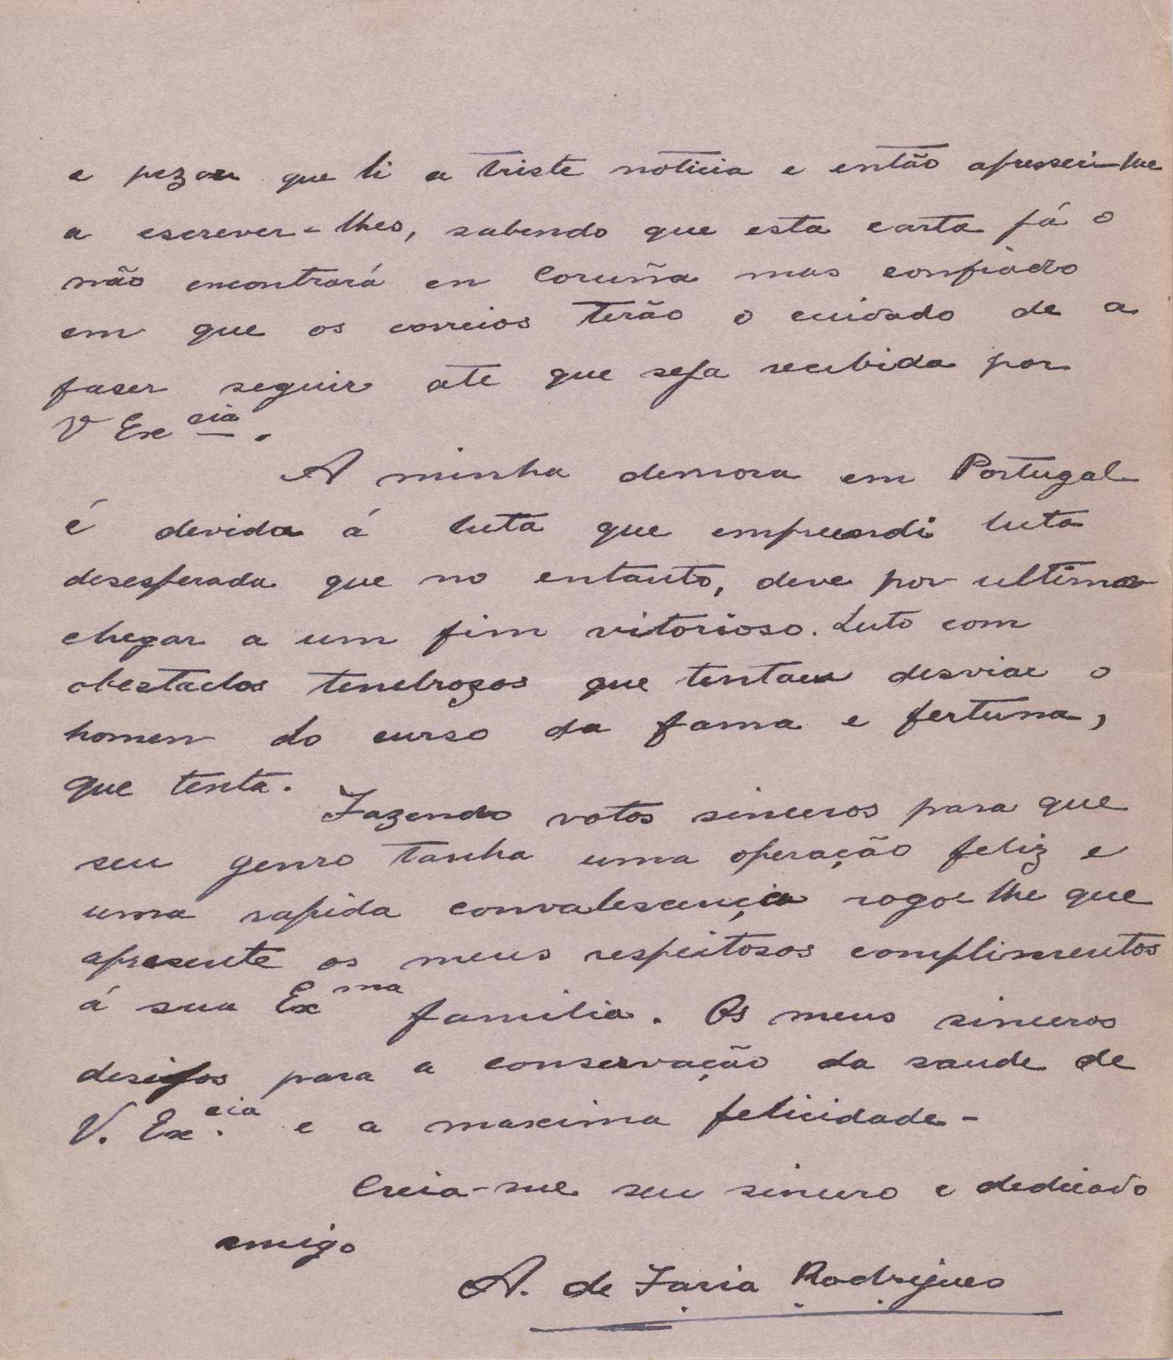 e pezar que li a triste noticia e então apressei-me
a escrever-lhes, sabendo que esta carta já o
não encontrará en Coruña mas confiado
em que os correios terão o cuidado de a
faser seguir ate que seja recebida por
V Ex cia.
A minha demora em Portugal
é devida á luta que empreendi luta
desesperada que no entanto, deve por ultimo
chegar a um fim vitorioso. Luto com
obestaclos tenebrozos que tentam desviar o
homen do curso da fama e fertuna,
que tenta.
Fazendo votos sinceros para que
seu genro tanha uma operação feliz e
uma rapida convalescença rogo lhe que
apresente os meus respeitosos complimentos
á sua Ex ma familia. Os meus sinceros
desejos para a conservação da saude de
V. Ex.cia e a maxima felicidade-
Creia-me seu sincero e dedicado
amigo
A. de Faria Rodrigues